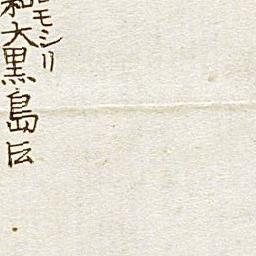 モシリ
和大黒島伝